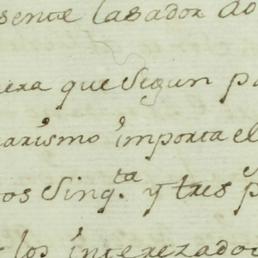 sente tasador do
era que segun pa
marismo importa el
tos sinq.ta y tres p
los interezado